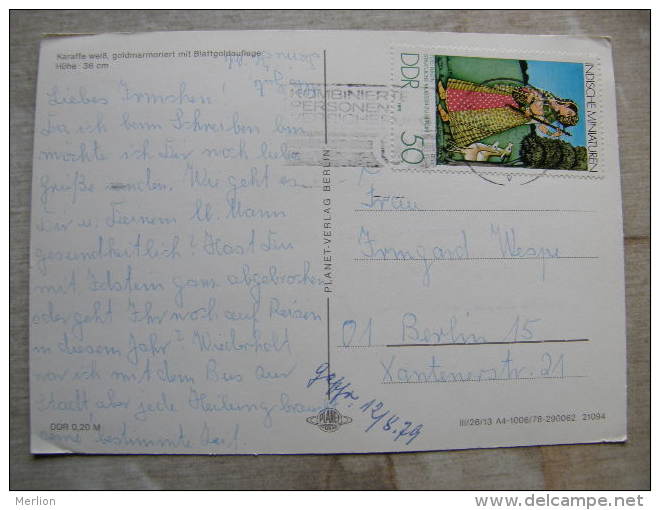 Karaffe weiß, goldmarmoriert mit Blattgoldauflage
Höhe: 36 cm
Liebes Irmchen!
Da ich beim Schreiben bin
möchte ich Dir noch liebe
Grüße senden. Wie geht es
Dir u. Deinem lb. Mann
gesundheitlich? Hast Du
mit Idstein ganz abgebrochen
oder geht Ihr noch auf Reisen
in diesem Jahr? Wiederholt
war ich mit dem Bus zur
Stadt aber jede Heilung braucht
eine bestimmte Zeit
DDR 0,20 M
KOMBINIERTE
PERSONEN
INDISCHE MINIATUREN
DDR
50
PLANET-VERLAG BERLIN
Frau
Irmgard Wespe
01 Berlin 15
Xantenerstr. 21
12/8.79
PLANET
III/26/13 A4-1006/78-290062 21094
Merlion
www.delcampe.net